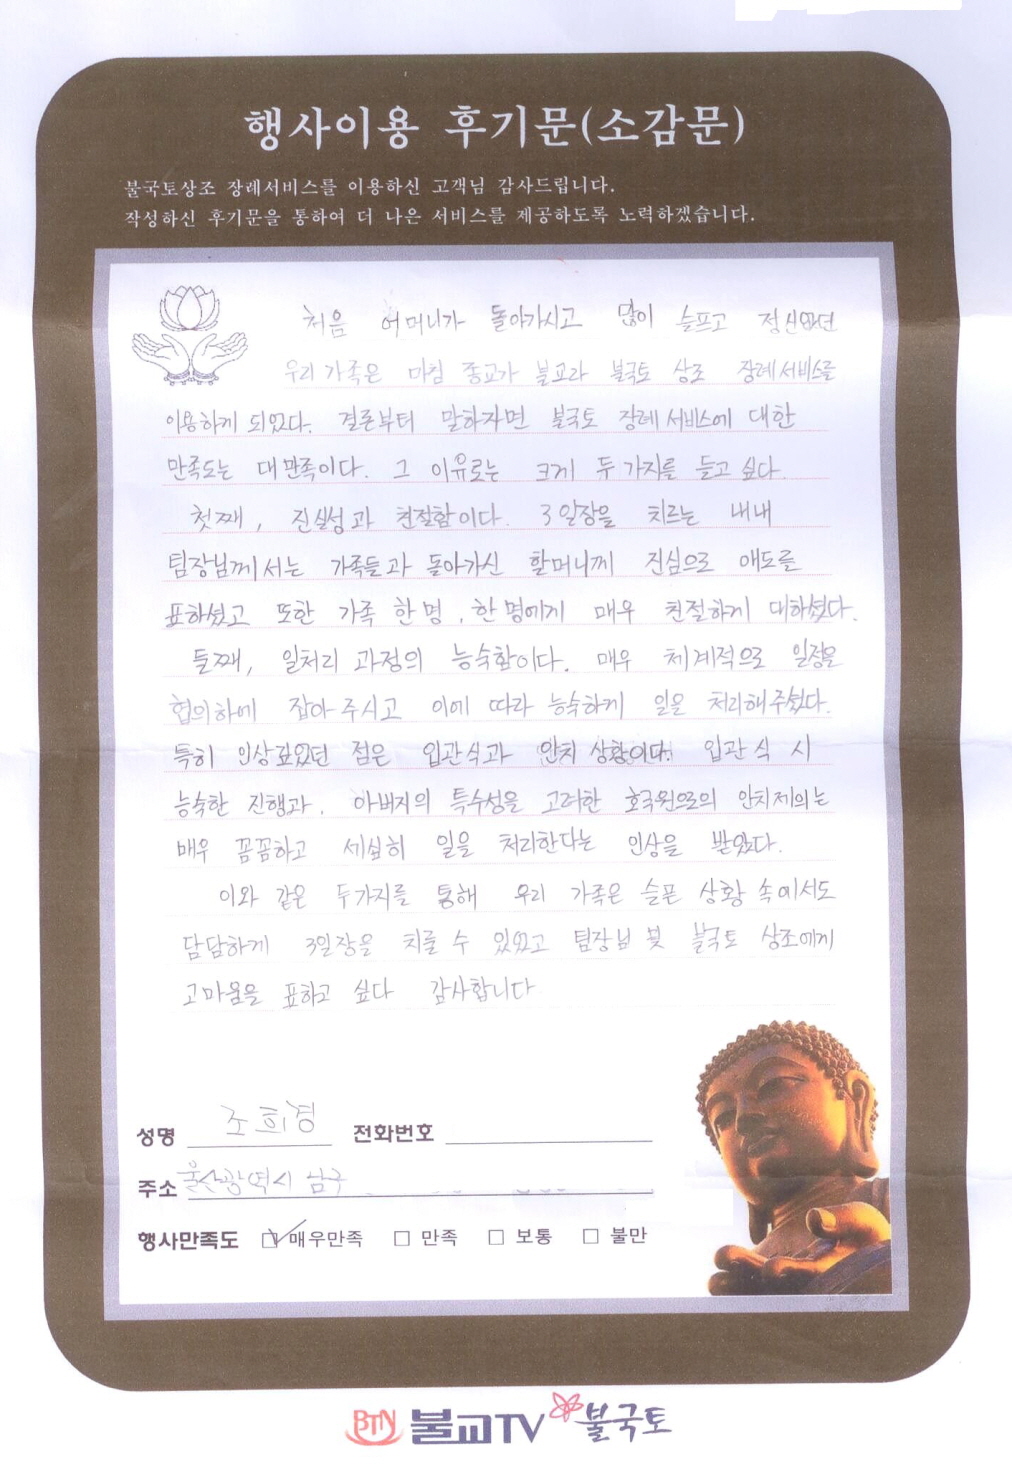 행사이용 후기문(소감문)
불국토상조 장례서비스를 이용하신 고객님 감사드립니다.
작성하신 후기문을 통하여 더 나은 서비스를 제공하도록 노력하겠습니다.
처음 어머니가 돌아가시고 많이 슬프고 정신없던
우리 가족은 마침 종교가 불교라 불국토 상조 장례서비스를
이용하게 되었다. 결론부터 말하자면 불국토 장례서비스에 대한
만족도는 대만족이다. 그 이유로는 크게 두가지를 들고 싶다.
첫째, 진실성과 친절함이다. 3일장을 치르는 내내
팀장님께서는 가족들과 돌아가신 할머니께 진심으로 애도를
표하셨고 또한 가족 한명, 한명에게 매우 친절하게 대하셨다.
둘째, 일처리 과정의 능숙함이다. 매우 체계적으로 일정을
협의하에 잡아주시고 이에 따라 능숙하게 일을 처리해주셨다.
특히 인상깊었던 점은 입관식과 안치 상황이다. 입관식 시
능숙한 진행과, 아버지의 특수성을 고려한 호국원으로의 안치제의는
매우 꼼꼼하고 세심히 일을 처리한다는 인상을 받았다.
이와 같은 두가지를 통해 우리 가족은 슬픈 상황 속에서도
담담하게 3일장을 치룰 수 있었고 팀장님 및 불국토 상조에게
고마움을 표하고 싶다 감사합니다
성명 조희경 전화번호
주소 울산광역시 남구
행사만족도 매우만족 만족 보통 불만
BTN 불교TV 불국토